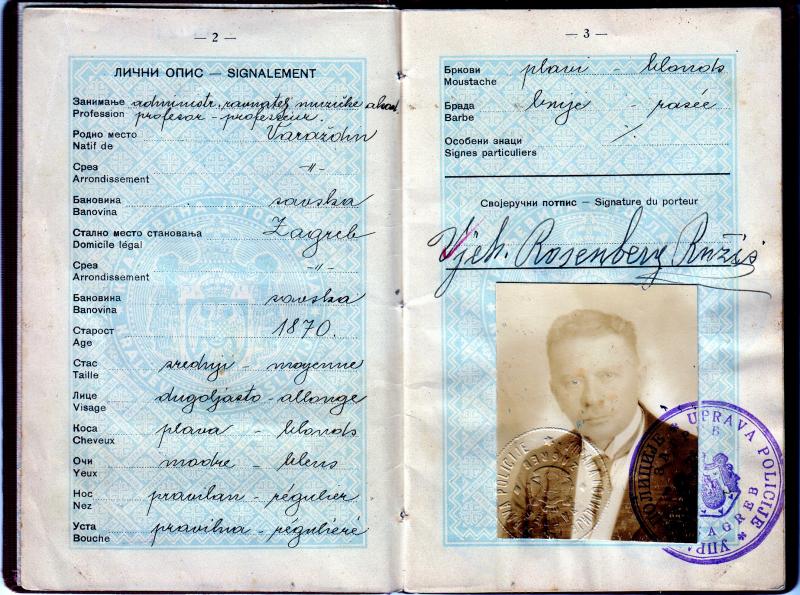 — 2 —
ЛИЧНИ ОПИС — SIGNALEMENT
Занимање administr. ravnatelj muzičke akad.
Profession profesor - professeur.
Родно место Varaždin
Natif de
Срез -"-
Arrondissement
Бановина savska
Banovina
Стално место становања Zagreb
Domicile légal
Срез -"-
Arrondissement
Бановина savska
Banovina
Старост 1870.
Age
Стас srednji - moyenne
Taille
Лице dugoljasto - allonge
Visage
Коса plava - blonds
Cheveux
Очи modre - bleus
Yeux
Нос pravilan - régulier
Nez
Уста pravilna - régulière
Bouche
— 3 —
Бркови plavi - blonds
Moustache
Брада brije - rasée
Barbe
Особени знаци /
Signes particuliers
Својеручни потпис — Signature du porteur
Vjek. Rosenberg Ružić
UPRAVA POLICIJE
ZAGREB